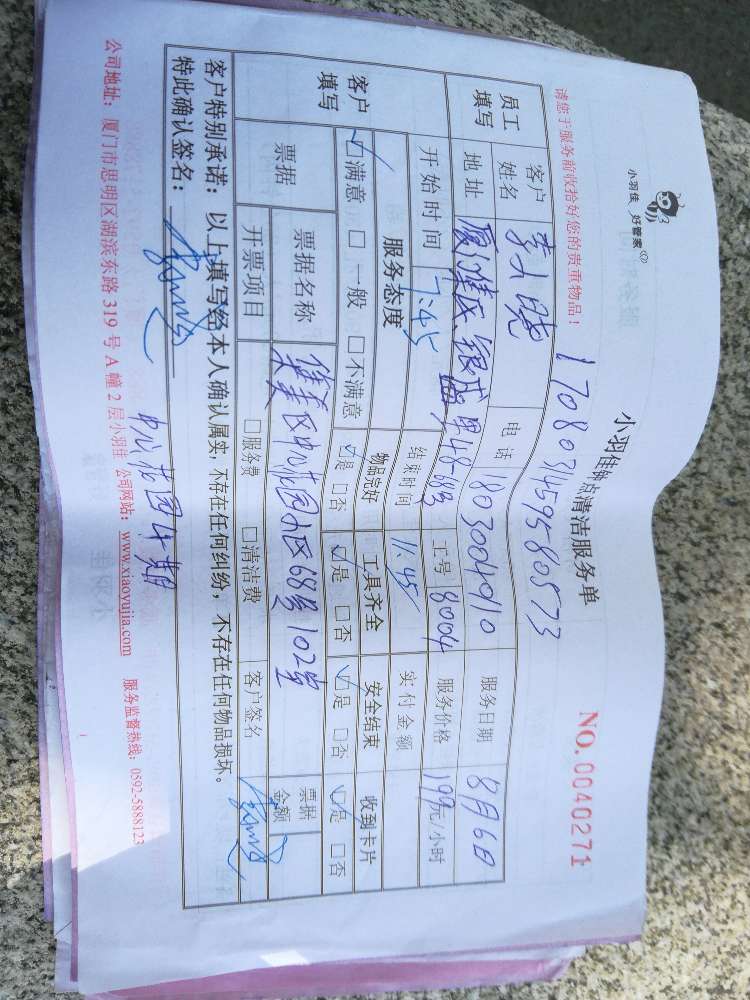 小羽佳 好管家
小羽佳钟点清洁服务单
NO. 0040271
请您于服务前收拾好您的贵重物品！
1708031459580573
员工填写
客户姓名 李小晓 电话 18030040110 服务日期 8月6日
地址 工号 8004 服务价格 199元/小时
开始时间 7:45 结束时间 11:45 实付金额
客户填写
服务态度 物品完好 工具齐全 安全结束 收到卡片
☑满意 □一般 □不满意 ☑是 □否 ☑是 □否 ☑是 □否 ☑是 □否
票据 票据名称 集美区中心花园小区68号102室 票据金额
开票项目 □服务费 □清洁费 客户签名
客户特别承诺：以上填写经本人确认属实，不存在任何纠纷，不存在任何物品损坏。
特此确认签名：
中心花园4期
公司地址：厦门市思明区湖滨东路 319 号 A 幢 2 层小羽佳 公司网站：www.xiaoyujia.com 服务监督热线：0592-5888123